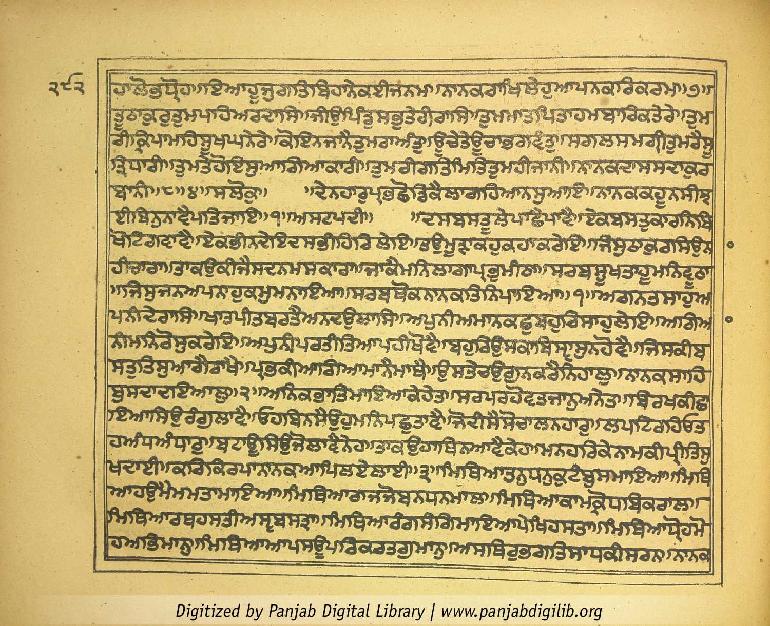 ੨੯੨
ਹਾਲੋਭਧ੍ਰੋਹ॥ਇਆਹੂਜੁਗਤਿਬਿਹਾਨੇਕਈਜਨਮ॥ਨਾਨਕਰਾਖਿਲੇਹੁਆਪਨਕਰਿਕਰਮ॥੭॥
ਤੂਠਾਕੁਰੁਤੁਮਪਹਿਅਰਦਾਸਿ॥ਜੀਉਪਿੰਡੁਸਭੁਤੇਰੀਰਾਸਿ॥ਤੁਮਮਾਤਪਿਤਾਹਮਬਾਰਿਕਤੇਰੇ॥ਤੁਮ
ਰੀਕ੍ਰਿਪਾਮਹਿਸੂਖਘਨੇਰੇ॥ਕੋਇਨਜਾਨੈਤੁਮਰਾਅੰਤੁ॥ਊਚੇਤੇਊਚਾਭਗਵੰਤ॥ਸਗਲਸਮਗ੍ਰੀਤੁਮਰੈਸੂ
ਤ੍ਰਿਧਾਰੀ॥ਤੁਮਤੇਹੋਇਸੁਆਗਿਆਕਾਰੀ॥ਤੁਮਰੀਗਤਿਮਿਤਿਤੁਮਹੀਜਾਨੀ॥ਨਾਨਕਦਾਸਸਦਾਕੁਰ
ਬਾਨੀ॥੮॥੪॥ਸਲੋਕੁ॥ ॥ਦੇਨਹਾਰੁਪ੍ਰਭਛੋਡਿਕੈਲਾਗਹਿਆਨਸੁਆਇ॥ਨਾਨਕਕਹੂਨਸੀਝ
ਈਬਿਨੁਨਾਵੈਪਤਿਜਾਇ॥੧॥ਅਸਟਪਦੀ॥ ॥ਦਸਬਸਤੂਲੇਪਾਛੈਪਾਵੈ॥ਏਕਬਸਤੁਕਾਰਨਿਬਿ
ਖੋਟਿਗਵਾਵੈ॥ਏਕਭੀਨਦੇਇਦਸਭੀਹਿਰਿਲੇਇ॥ਤਉਮੂੜਾਕਹੁਕਹਾਕਰੇਇ॥ਜਿਸੁਠਾਕੁਰਸਿਉਨ
ਹੀਚਾਰਾ॥ਤਾਕਉਕੀਜੈਸਦਨਮਸਕਾਰਾ॥ਜਾਕੈਮਨਿਲਾਗਾਪ੍ਰਭੁਮੀਠਾ॥ਸਰਬਸੂਖਤਾਹੂਮਨਿਵੂਠਾ
॥ਜਿਸੁਜਨਅਪਨਾਹੁਕਮੁਮਨਾਇਆ॥ਸਰਬਥੋਕਨਾਨਕਤਿਨਿਪਾਇਆ॥੧॥ਅਗਨਤਸਾਹੁਅ
ਪਨੀਦੇਰਾਸਿ॥ਖਾਤਪੀਤਬਰਤੈਅਨਦਉਲਾਸਿ॥ਅਪੁਨੀਅਮਾਨਕਛੁਬਹੁਰਿਸਾਹੁਲੇਇ॥ਅਗਿਆ
ਨੀਮਨਿਰੋਸੁਕਰੇਇ॥ਅਪੁਨੀਪਰਤੀਤਿਆਪਹੀਖੋਵੈ॥ਬਹੁਰਿਉਸਕਾਬਿਸ੍ਵਾਸੁਨਹੋਵੈ॥ਜਿਸਕੀਬ
ਸਤੁਤਿਸੁਆਗੈਰਾਖੈ॥ਪ੍ਰਭਕੀਆਗਿਆਮਾਨੈਮਾਥੈ॥ਉਸਤੇਚਉਗੁਨਕਰੈਨਿਹਾਲੁ॥ਨਾਨਕਸਾਹਿ
ਬੁਸਦਾਦਇਆਲੁ॥੨॥ਅਨਿਕਭਾਤਿਮਾਇਆਕੇਹੇਤ॥ਸਰਪਰਹੋਵਤਜਾਨੁਅਨੇਤ॥ਬਿਰਖਕੀਛਾ
ਇਆਸਿਉਰੰਗੁਲਾਵੈ॥ਓਹਬਿਨਸੈਉਹੁਮਨਿਪਛੁਤਾਵੈ॥ਜੋਦੀਸੈਸੋਚਾਲਨਹਾਰੁ॥ਲਪਟਿਰਹਿਓਤ
ਹਅੰਧਅੰਧਾਰੁ॥ਬਟਾਊਸਿਉਜੋਲਾਵੈਨੇਹ॥ਤਾਕਉਹਾਥਿਨਆਵੈਕੇਹ॥ਮਨਹਰਿਕੇਨਾਮਕੀਪ੍ਰੀਤਿਸੁ
ਖਦਾਈ॥ਕਰਿਕਿਰਪਾਨਾਨਕਆਪਿਲਏਲਾਈ॥੩॥ਮਿਥਿਆਤਨੁਧਨੁਕੁਟੰਬੁਸਬਾਇਆ॥ਮਿਥਿ
ਆਹਉਮੈਮਮਤਾਮਾਇਆ॥ਮਿਥਿਆਰਾਜਜੋਬਨਧਨਮਾਲ॥ਮਿਥਿਆਕਾਮਕ੍ਰੋਧਬਿਕਰਾਲ॥
ਮਿਥਿਆਰਥਹਸਤੀਅਸ੍ਵਬਸਤ੍ਰਾ॥ਮਿਥਿਆਰੰਗਸੰਗਿਮਾਇਆਪੇਖਿਹਸਤਾ॥ਮਿਥਿਆਧ੍ਰੋਹਮੋ
ਹਅਭਿਮਾਨੁ॥ਮਿਥਿਆਆਪਸਊਪਰਿਕਰਤਗੁਮਾਨੁ॥ਅਸਥਿਰੁਭਗਤਿਸਾਧਕੀਸਰਨ॥ਨਾਨਕ
Digitized by Panjab Digital Library | www.panjabdigilib.org